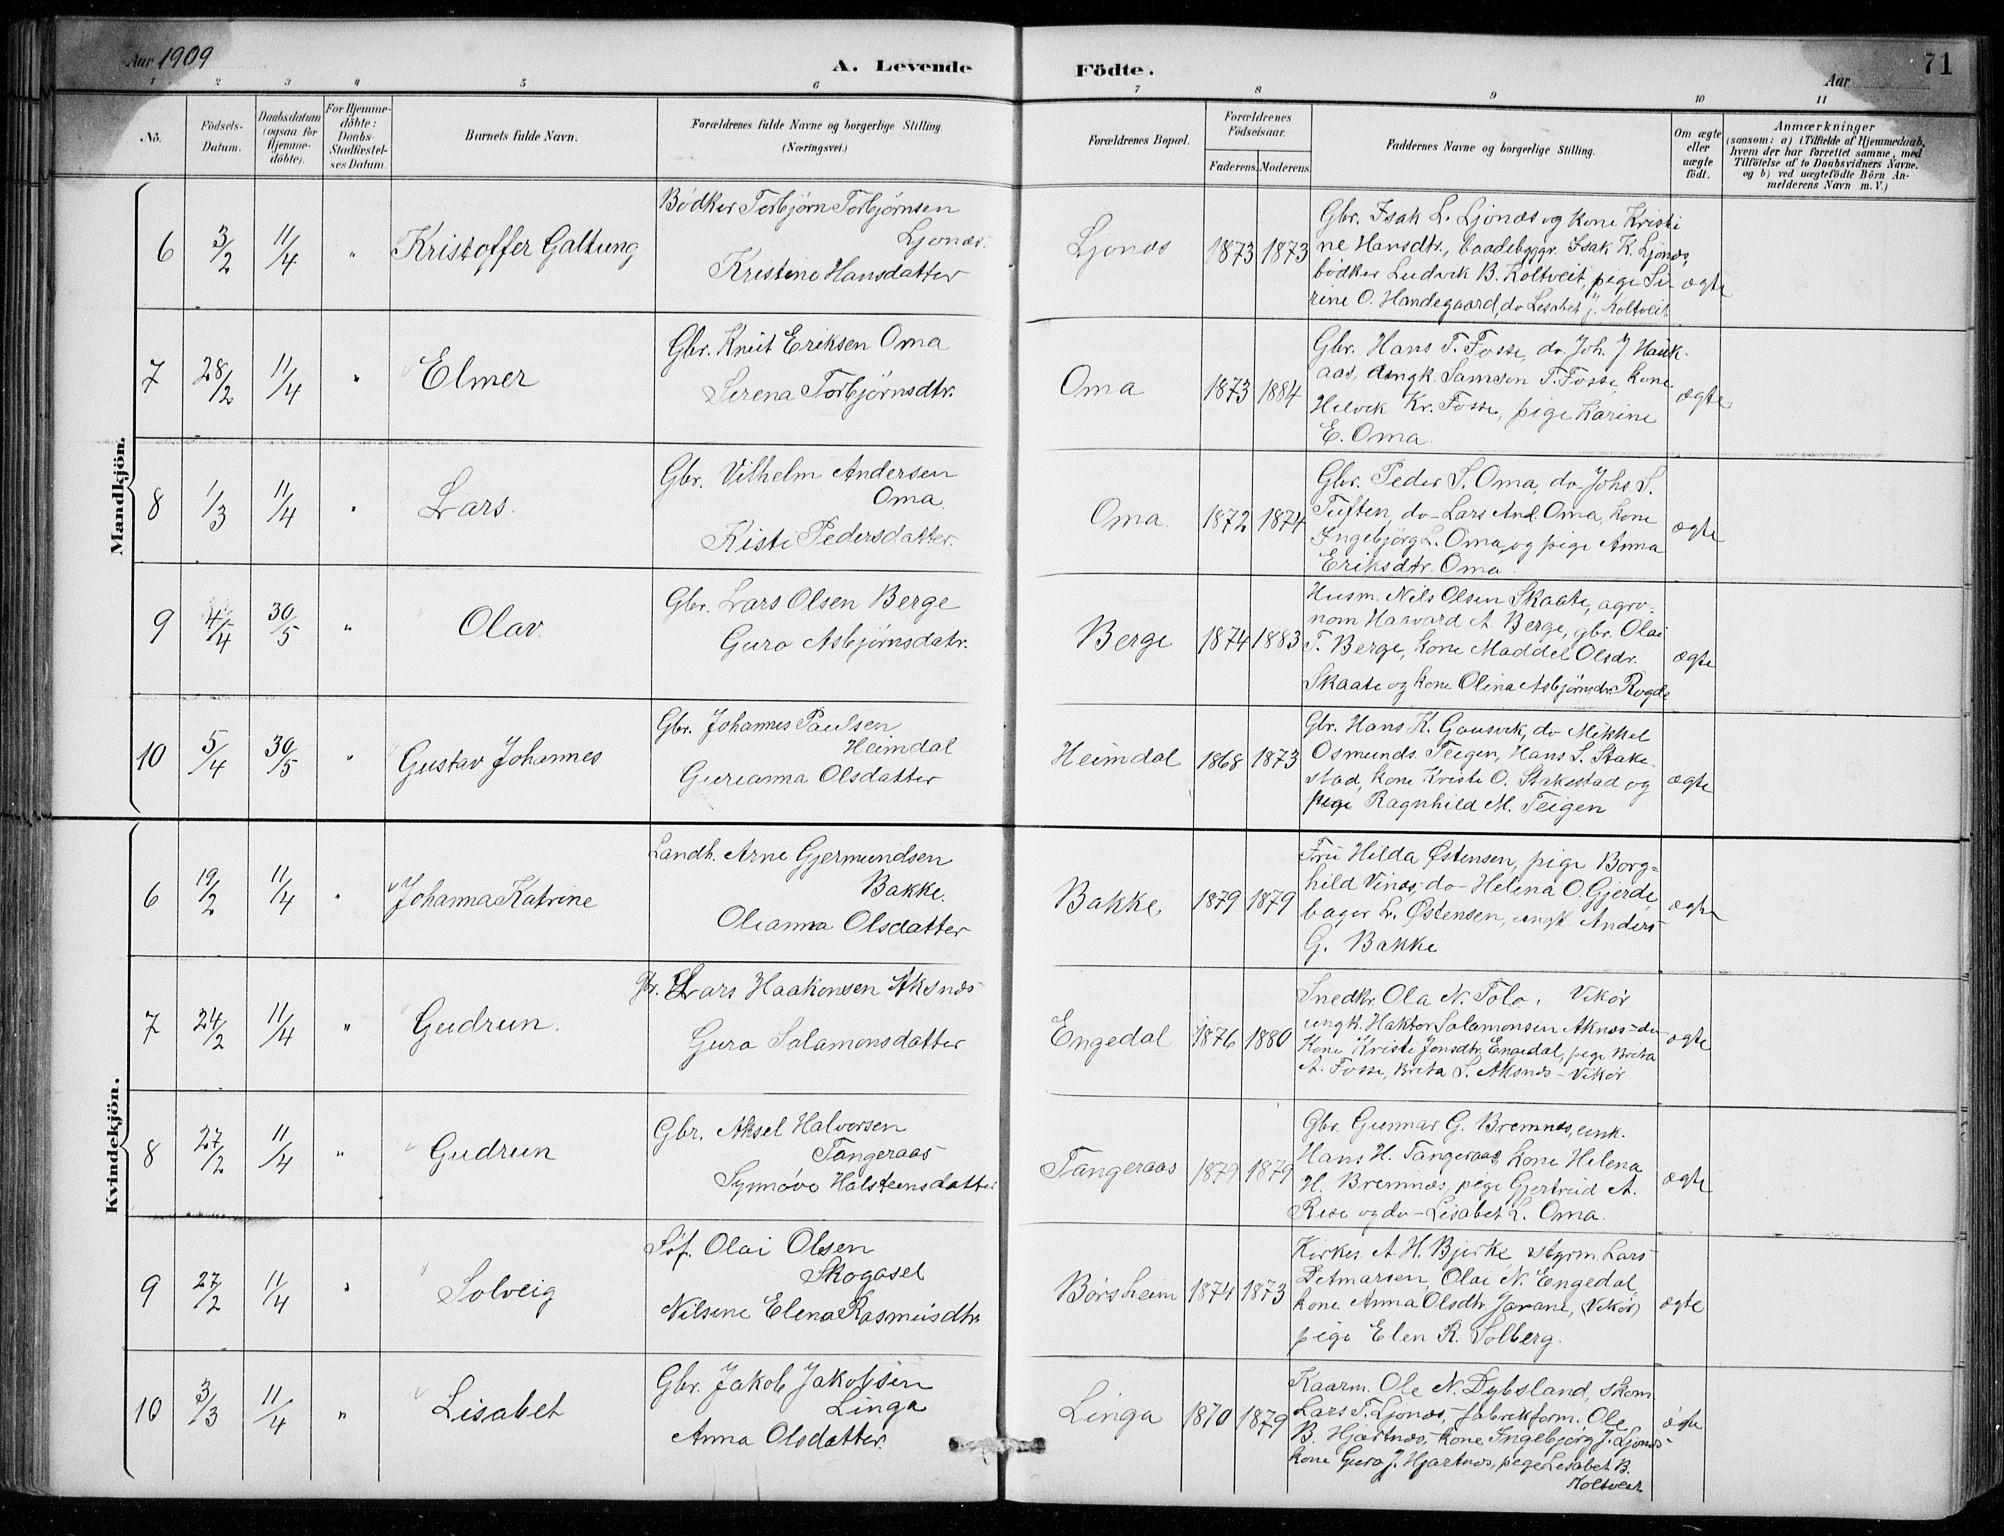 Aar 1909
A. Levende Födte.
Aar
71
1 2 3 4 5 6 7 8 9 10 11
No.
Födsels-Datum.
Daabsdatum (ogsaa for Hjemme-döbte).
For Hjemme-döbte: Daabs-Stadfæstel-ses Datum.
Barnets fulde Navn.
Forældrenes fulde Navne og borgerlige Stilling.
(Næringsvei.)
Forældrenes Bopæl.
Forældrenes Födselsaar.
Faderens. Moderens.
Faddernes Navne og borgerlige Stilling.
Om ægte eller uægte födt.
Anmærkninger
(saasom: a) i Tilfælde af Hjemmedaab,
hvem der har forrettet samme, med
Tilföielse af to Daabsvidners Navne.
og b) ved uægtefödte Börn An-
melderens Navn m. V.)
Mandkjön.
6 3/2 11/4 " Kristoffer Galtung
Bødker Torbjørn Torbjørnsen
Ljonæs.
Kristine Hansdatter
Ljonæs 1873 1873
Gbr. Isak L. Ljonæs og kone Kristi
ne Hansdtr., baadebyggr. Isak K. Ljonæs,
bødker Ludvik B. Koltveit, pige Si-
rine O. Handegaard, do Lisabet J. Koltveit
ægte
7 28/2 11/4 " Elmer
Gbr. Knut Eriksen Oma
Sirena Torbjørnsdtr.
Oma 1873 1884
Gbr. Hans T. Fosse, do. Joh. J. Hauk-
aas, ungk. Samson T. Fosse, kone
Helvik Kr. Fosse, pige Karine
E. Oma.
ægte
8 1/3 11/4 " Lars.
Gbr. Vilhelm Andersen
Oma.
Kisti Pedersdatter.
Oma. 1872 1874
Gbr. Peder S. Oma, do Johs S.
Tuften, do- Lars And. Oma, kone
Ingebjørg L. Oma og pige Anna
Eriksdtr. Oma.
ægte
9 4/4 30/5 " Olav.
Gbr. Lars Olsen Berge
Guro Asbjørnsdatr.
Berge 1874 1883
Husm. Nils Olsen Skaate, agro-
nom Havard A. Berge, gbr. Olai
T. Berge, kone Maddel Olsdr.
Skaate og kone Olina Asbjørnsdr. Rogde
ægte
10 5/4 30/5 " Gustav Johannes
Gbr. Johannes Paulsen
Heimdal
Gurianna Olsdatter
Heimdal 1868 1873
Gbr. Hans K. Gausvik, do Mikkel
Osmunds. Teigen, Hans S. Stake-
stad, kone Kristi O. Stakestad og
pige Ragnhild M. Teigen
ægte
Kvindekjön.
6 19/2 11/4 " Johanna Katrine
Landh. Arne Gjermundsen
Bakke.
Olianna Olsdatter
Bakke 1879 1879
Fru Hilda Østensen, pige Borg-
hild Vinæs, do- Helena O. Gjerde,
bager L. Østensen, ungk. Anders
G. Bakke
ægte
7 24/2 11/4 " Gudrun.
Gbr. Lars Haakonsen Aksnæs
Guro Salamonsdatter
Engedal 1876 1880
Snedkr. Ola N. Tolo, Vikør
ungk. Haktor Salamonsen Aknæs-do
Kone Kristi Jonsdtr. Engedal, pige Brita
A. Fosse, Brita S. Aksnæs - Vikør
ægte
8 27/2 11/4 " Gudrun
Gbr. Aksel Halvorsen
Tangeraas
Synnøve Halsteinsdatter
Tangeraas 1879 1879
Gbr. Gunnar G. Bremnæs, enk.
Hans H. Tangeraas, kone Helena
H. Bremnæs, pige Gjertrud A.
Rise og do- Lisabet L. Oma.
ægte
9 27/2 11/4 " Solveig
Sóf. Olai Olsen
Skogasel
Nilsine Elena Rasmusdtr.
Børsheim 1874 1873
Kirkes. A. H. Bjerke, styrm. Lars
Detmarsen, Olai N. Engedal,
kone Anna Olsdtr. Javane, (Vikør)
pige Elen R. Solberg.
ægte
10 3/3 11/4 " Lisabet
Gbr. Jakob Jakobsen
Linga
Anna Olsdatter.
Linga 1870 1879
Kaarm. Ole N. Dybsland, skom.
Lars T. Ljonæs,- fabrikform. Ole
B. Hjartnæs,- kone Ingebjørg J. Ljonæs-
kone Guro J. Hjartnæs, pige Lisabet B.
Koltveit
ægte